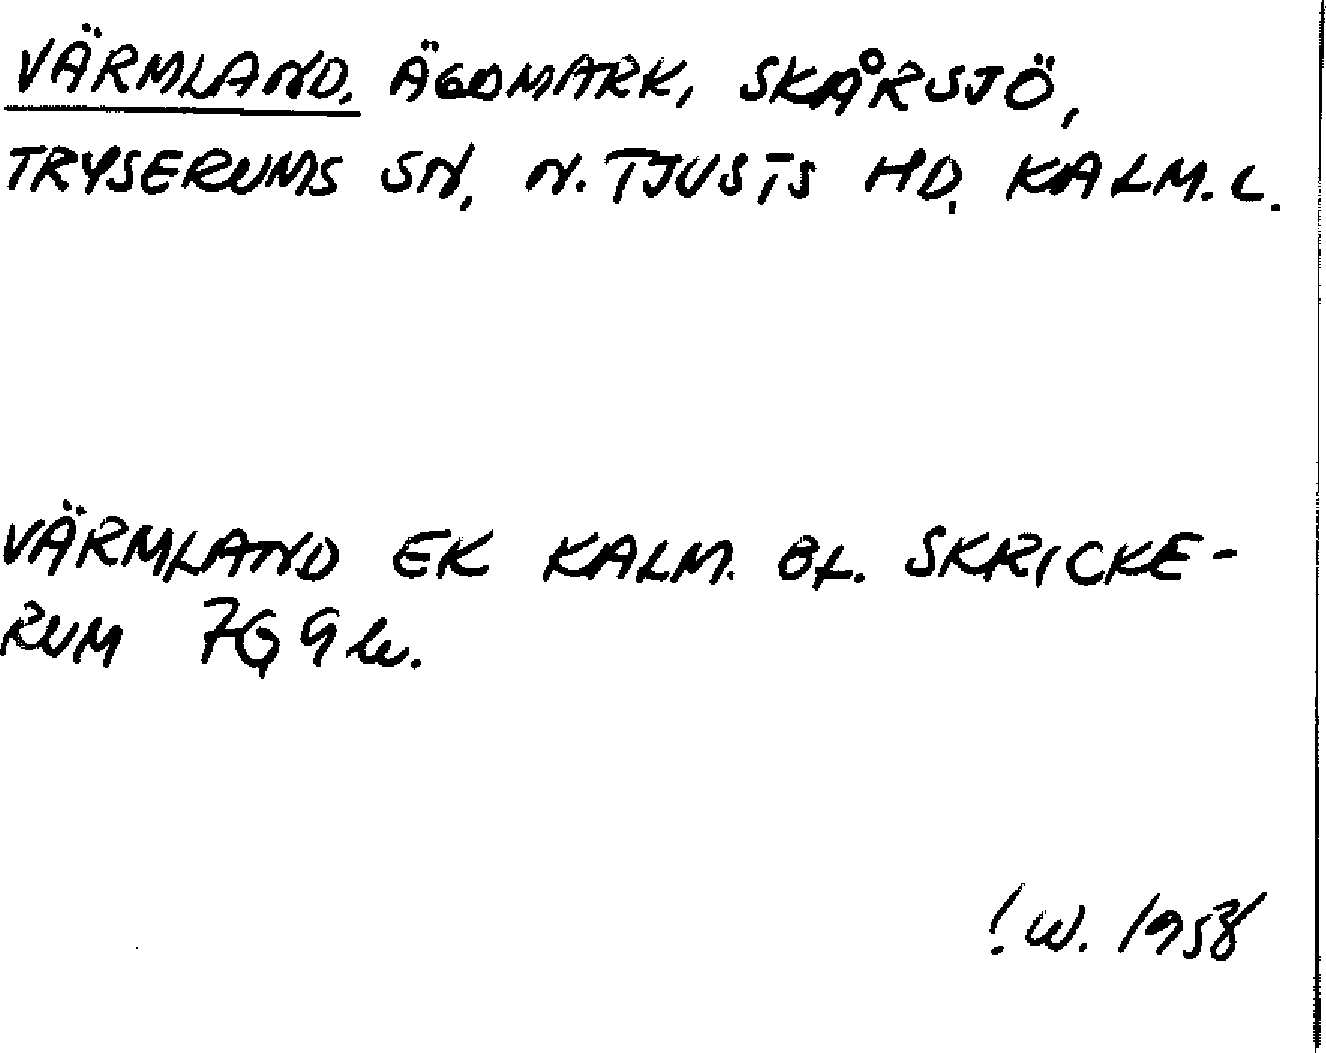 VÄRMLAND, ÄGOMARK, SKÅRSJÖ,
TRYSERUMS SN, N. TJUSTS HD, KALM. L.
VÄRMLAND EK KALM. BL. SKRICKE-
RUM 7G 9
! W. 1958